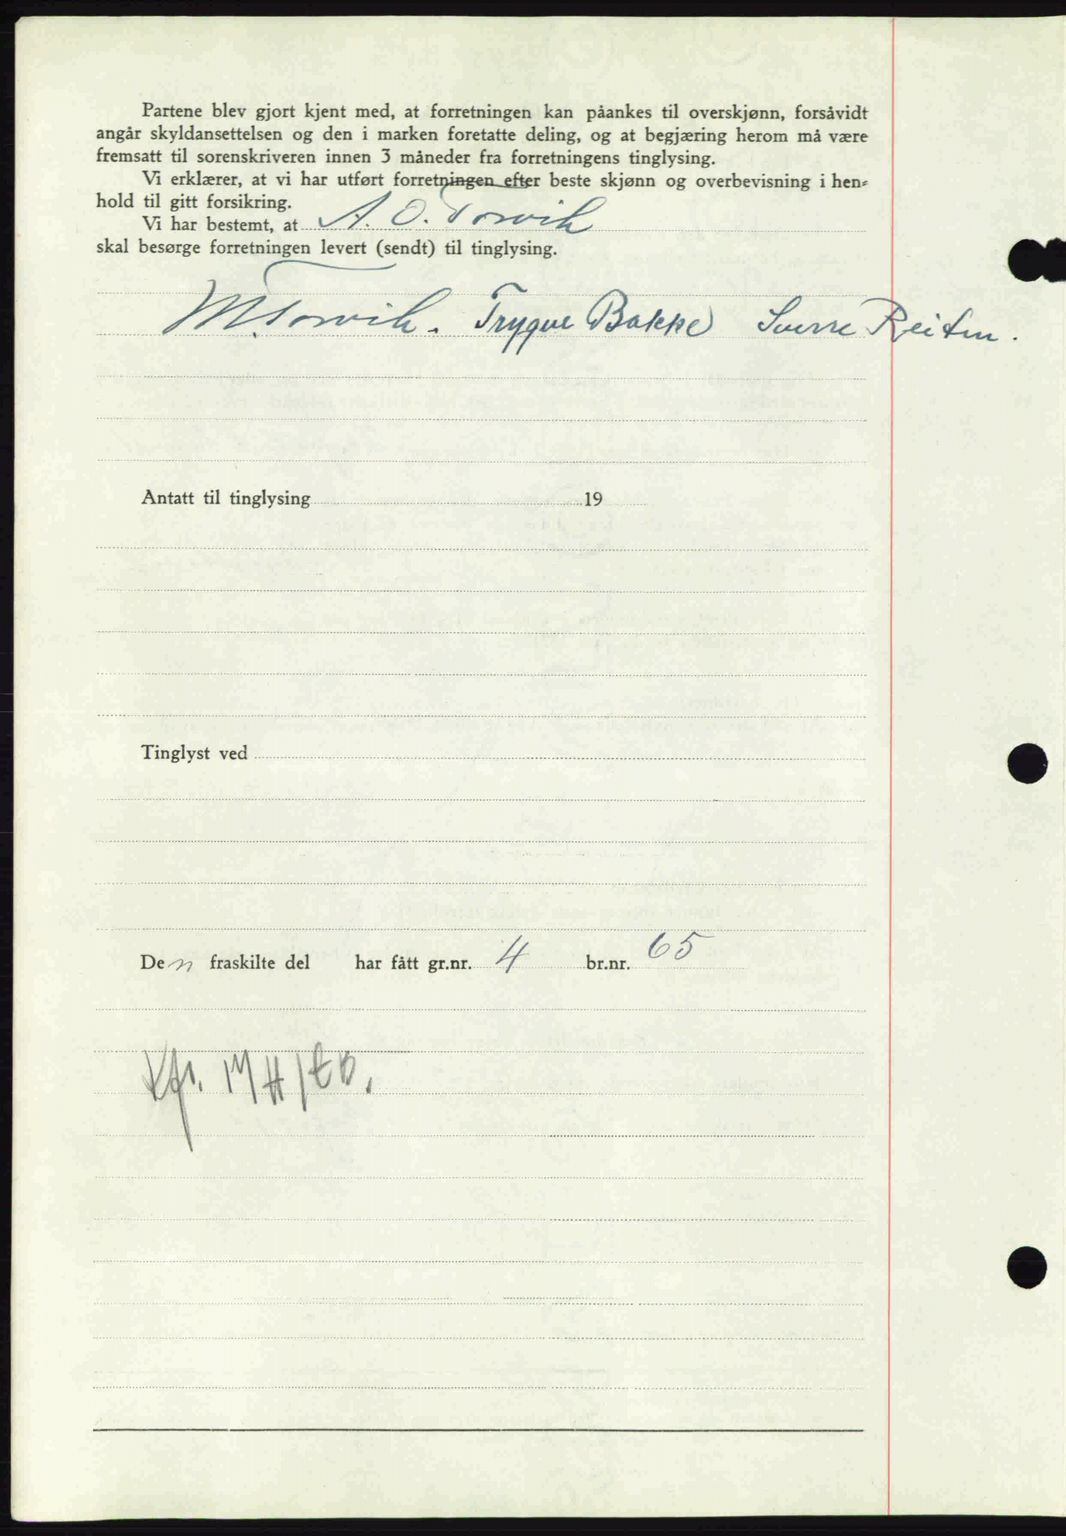 Partene blev gjort kjent med, at forretningen kan påankes til overskjønn, forsåvidt
angår skyldansettelsen og den i marken foretatte deling, og at begjæring herom må være
fremsatt til sorenskriveren innen 3 måneder fra forretningens tinglysing.
Vi erklærer, at vi har utført forretningen efter beste skjønn og overbevisning i hen-
hold til gitt forsikring.
Vi har bestemt, at A. O. Torvik
skal besørge forretningen levert (sendt) til tinglysing.
M. Torvik. Trygve Bakke Sverre Reiten.
Antatt til tinglysing 19
Tinglyst ved
Den fraskilte del har fått gr.nr. 4 br.nr. 65